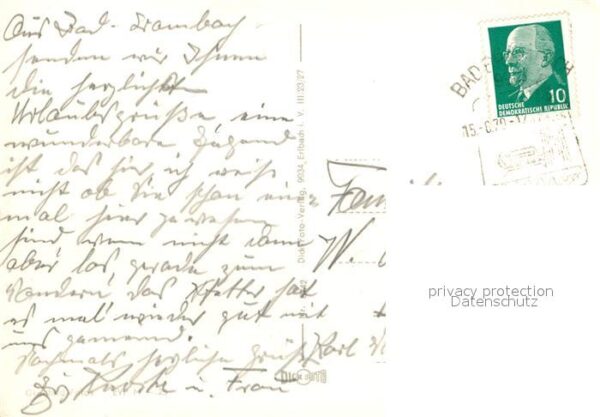 Aus Bad-Brambach
senden wir Ihnen
die herzlichsten
Urlaubsgrüße, eine
wunderbare Gegend
ist das hier, ich weiß
nicht ob Sie schon ein-
mal hier gewesen
sind, wenn nicht dann
aber los, gerade zum
Wandern, das Wetter hat
es mal wieder gut mit
uns gemeint.
Nochmals herzliche Grüße
u. Frau
Dick-Foto-Verlag, 9934 Erlbach i. V. III 23 27
DEUTSCHE
DEMOKRATISCHE REPUBLIK
10
BAD
15.-6.70-
Fam
W.
Karl
privacy protection
Datenschutz